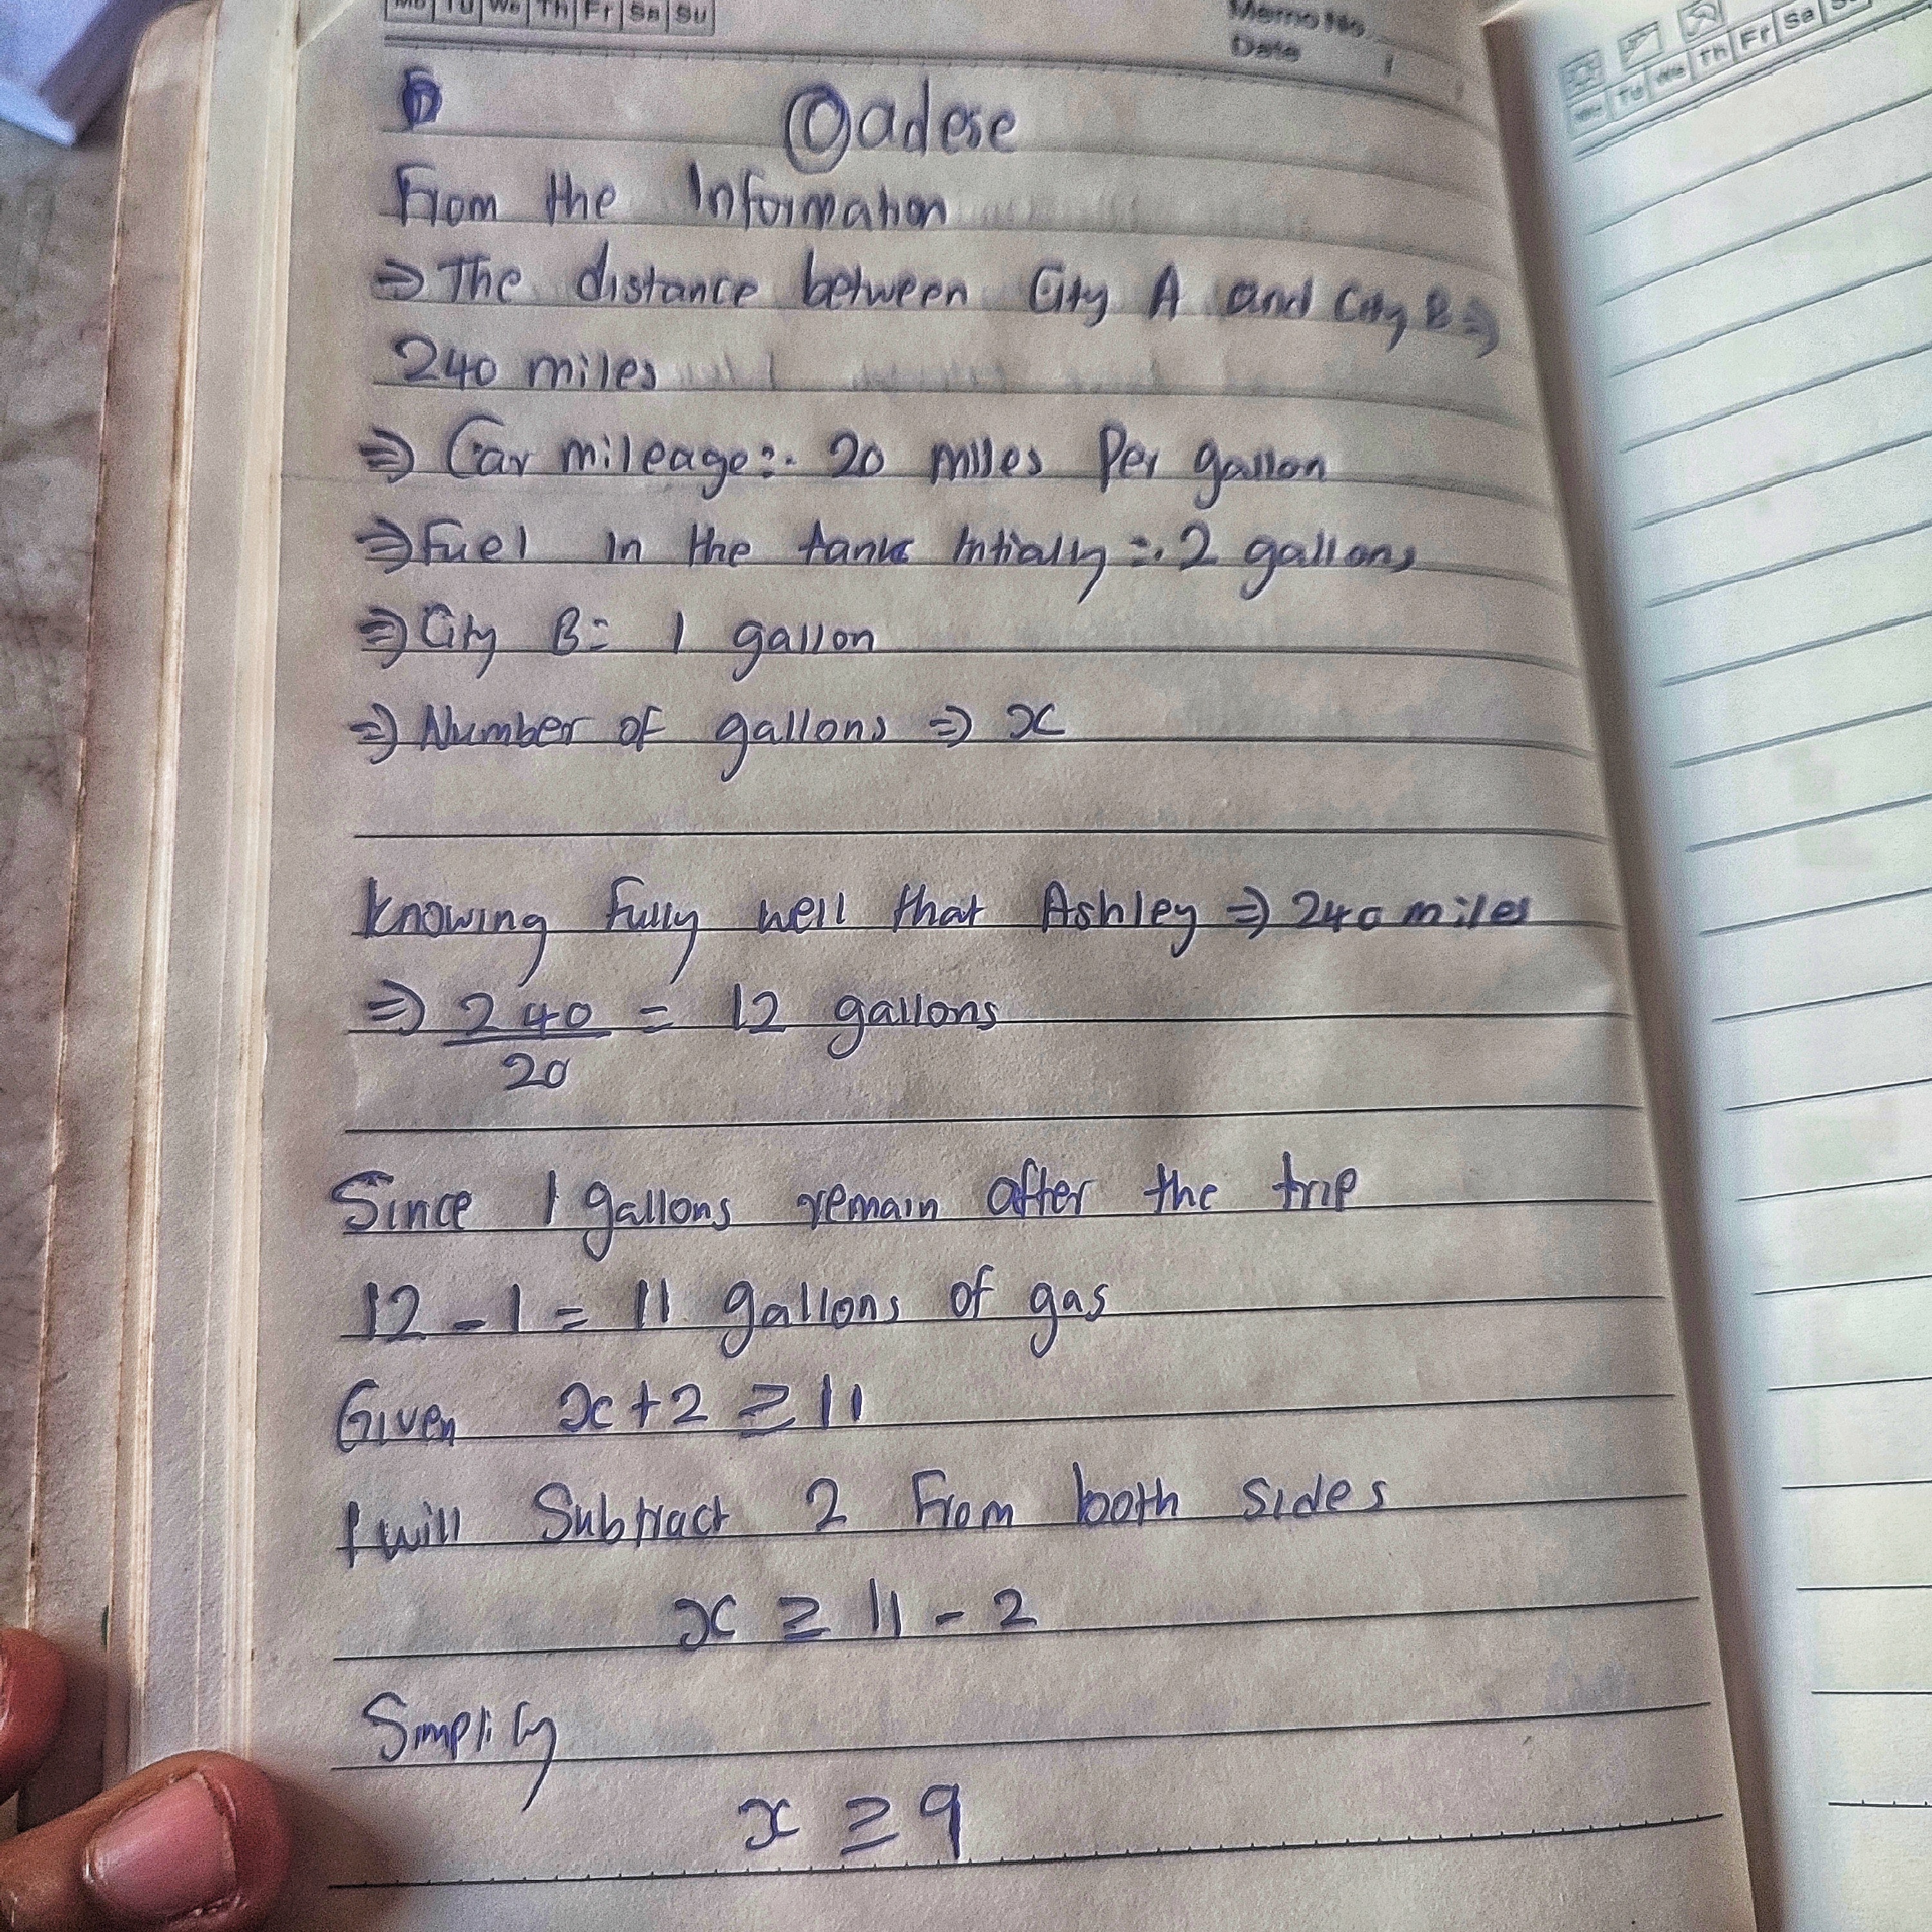 Mo Tu We Th Fr Sa Su
Memo No.
Date /
Oadese
From the Information
⇒ The distance between City A and City B ⇒
240 miles
⇒ Car mileage:- 20 miles Per gallon
⇒ Fuel in the tank Intially :- 2 gallons
⇒ City B = 1 gallon
⇒ Number of gallons ⇒ x
knowing fully well that Ashley ⇒ 240 miles
⇒ 240/20 = 12 gallons
Since 1 gallons remain after the trip
12 - 1 = 11 gallons of gas
Given x + 2 ≥ 11
I will Subtract 2 From both sides
x ≥ 11 - 2
Simplify
x ≥ 9
Mo Tu We Th Fr Sa